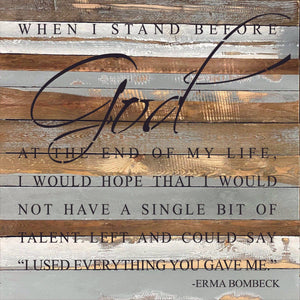 WHEN I STAND BEFORE
God
AT THE END OF MY LIFE,
I WOULD HOPE THAT I WOULD
NOT HAVE A SINGLE BIT OF
TALENT LEFT AND COULD SAY
“I USED EVERYTHING YOU GAVE ME.”
-ERMA BOMBECK